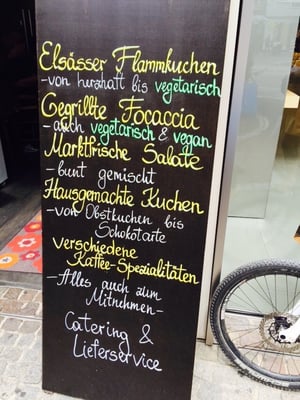 Elsässer Flammkuchen
-von herzhaft bis vegetarisch
Gegrillte Focaccia
-auch vegetarisch & vegan
Marktfrische Salate
-bunt gemischt
Hausgemachte Kuchen
-von Obstkuchen bis
Schokotarte
verschiedene
Kaffee-Spezialitäten
-Alles auch zum
Mitnehmen-
Catering &
Lieferservice